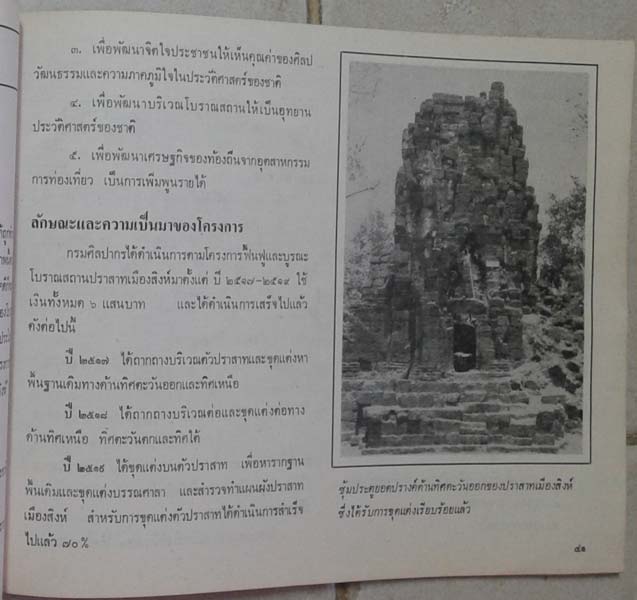 ๓. เพื่อพัฒนาจิตใจประชาชนให้เห็นคุณค่าของศิลป
วัฒนธรรมและความภาคภูมิใจในประวัติศาสตร์ของชาติ
๔. เพื่อพัฒนาบริเวณโบราณสถานให้เป็นอุทยาน
ประวัติศาสตร์ของชาติ
๕. เพื่อพัฒนาเศรษฐกิจของท้องถิ่นจากอุตสาหกรรม
การท่องเที่ยว เป็นการเพิ่มพูนรายได้
ลักษณะและความเป็นมาของโครงการ
กรมศิลปากรได้ดำเนินการตามโครงการฟื้นฟูและบูรณะ
โบราณสถานปราสาทเมืองสิงห์มาตั้งแต่ ปี ๒๕๑๗-๒๕๑๙ ใช้
เงินทั้งหมด ๖ แสนบาท และได้ดำเนินการเสร็จไปแล้ว
ดังต่อไปนี้
ปี ๒๕๑๗ ได้ถากถางบริเวณตัวปราสาทและขุดแต่งหา
พื้นฐานเดิมทางด้านทิศตะวันออกและทิศเหนือ
ปี ๒๕๑๘ ได้ถากถางบริเวณต่อและขุดแต่งต่อทาง
ด้านทิศเหนือ ทิศตะวันตกและทิศใต้
ปี ๒๕๑๙ ได้ขุดแต่งบนตัวปราสาท เพื่อหารากฐาน
พื้นเดิมและขุดแต่งบรรณศาลา และสำรวจทำแผนผังปราสาท
เมืองสิงห์ สำหรับการขุดแต่งตัวปราสาทได้ดำเนินการสำเร็จ
ไปแล้ว ๗๐%
ซุ้มประตูยอดปรางค์ด้านทิศตะวันออกของปราสาทเมืองสิงห์
ซึ่งได้รับการขุดแต่งเรียบร้อยแล้ว
๔๑